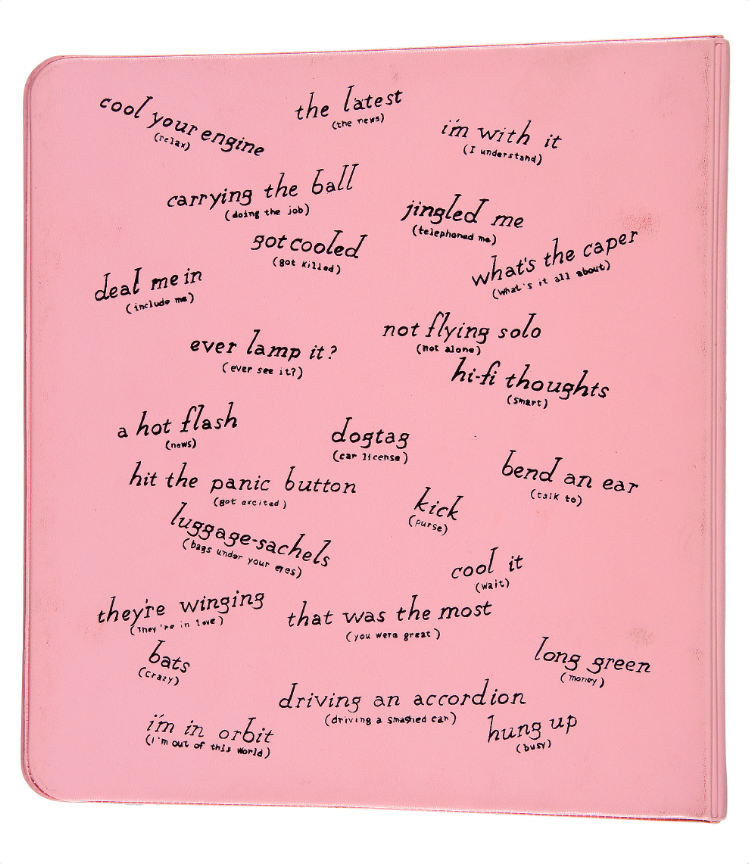 cool your engine
(relax)
the latest
(the news)
i'm with it
(I understand)
carrying the ball
(doing the job)
jingled me
(telephoned me)
got cooled
(got killed)
what's the caper
(what's it all about)
deal me in
(include me)
not flying solo
(not alone)
ever lamp it?
(ever see it?)
hi-fi thoughts
(smart)
a hot flash
(news)
dogtag
(car license)
bend an ear
(talk to)
hit the panic button
(got excited)
kick
(purse)
luggage-sachels
(bags under your eyes)
cool it
(wait)
they're winging
(They're in love)
that was the most
(you were great)
bats
(crazy)
long green
(money)
driving an accordion
(driving a smashed car)
i'm in orbit
(I'm out of this world)
hung up
(busy)